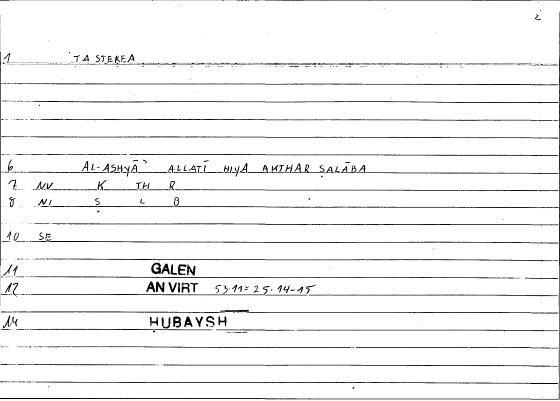 2
1 TA STEREA
6 AL-ASHYĀʾ ALLATĪ HIYA AKTHAR ṢALĀBA
7 NV K TH R
8 NI Ṣ L B
10 SE
11 GALEN
12 AN VIRT 53.11= 25.14-15
14 HUBAYSH